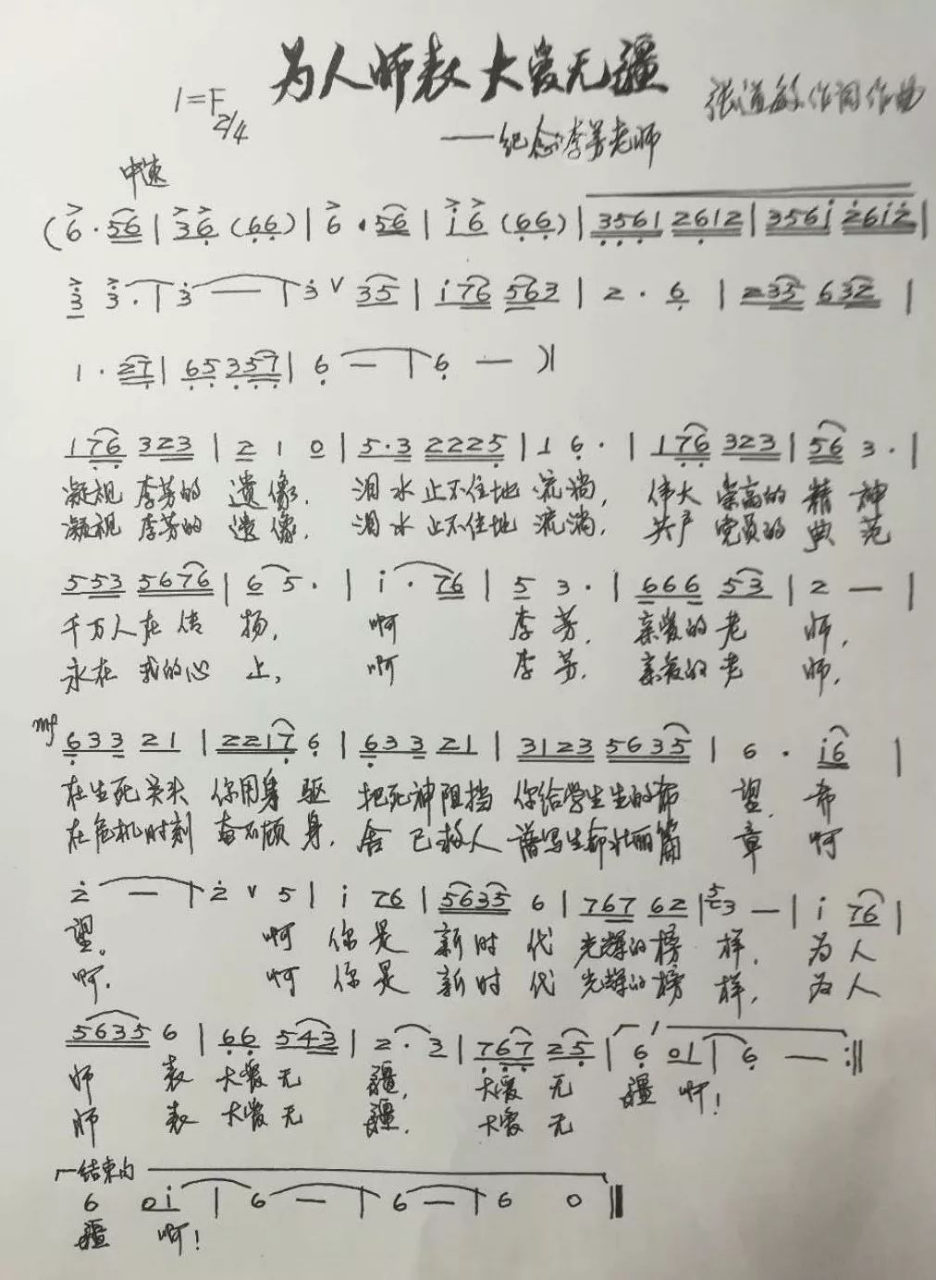 为人师表 大爱无疆
1=F 2/4
——纪念李芳老师
张道敏作词作曲
中速
(6·56|36(66)|6·56|i6(66)|3561 2612|356i 26i2|
3 3·|3—|3∨35|i76 563|2·6|235 632|
1·27|65 357|6—|6—)|
176 323|2 1 0|5·3 2225|1 6·|176 323|56 3·|
凝视 李芳的 遗像, 泪水止不住地 流淌, 伟大 崇高的 精神
凝视 李芳的 遗像, 泪水止不住地 流淌, 共产 党员的 典范
553 5676|6 5·|i·76|5 3·|666 53|2—|
千万人在传扬, 啊 李芳, 亲爱的老师,
永在 我的心上, 啊 李芳, 亲爱的老师,
mf
633 21|2217 6|633 21|3123 5635|6·i6|
在生死关头 你用身驱 把死神阻挡 你给学生生的希望, 希
在危机时刻 奋不顾身, 舍己救人 谱写生命壮丽篇章 啊
2—|2∨5|i 76|5635 6|767 62|5 3—|i 76|
望。 啊 你是 新时代 光辉的榜样, 为人
啊, 啊 你是 新时代 光辉的榜样, 为人
5635 6|66 543|2·3|767 25|1 6 01|6—:‖
师表 大爱无疆, 大爱无疆 啊!
师表 大爱无疆, 大爱无
结束句
6 0i|6—|6—|6 0‖
疆 啊!